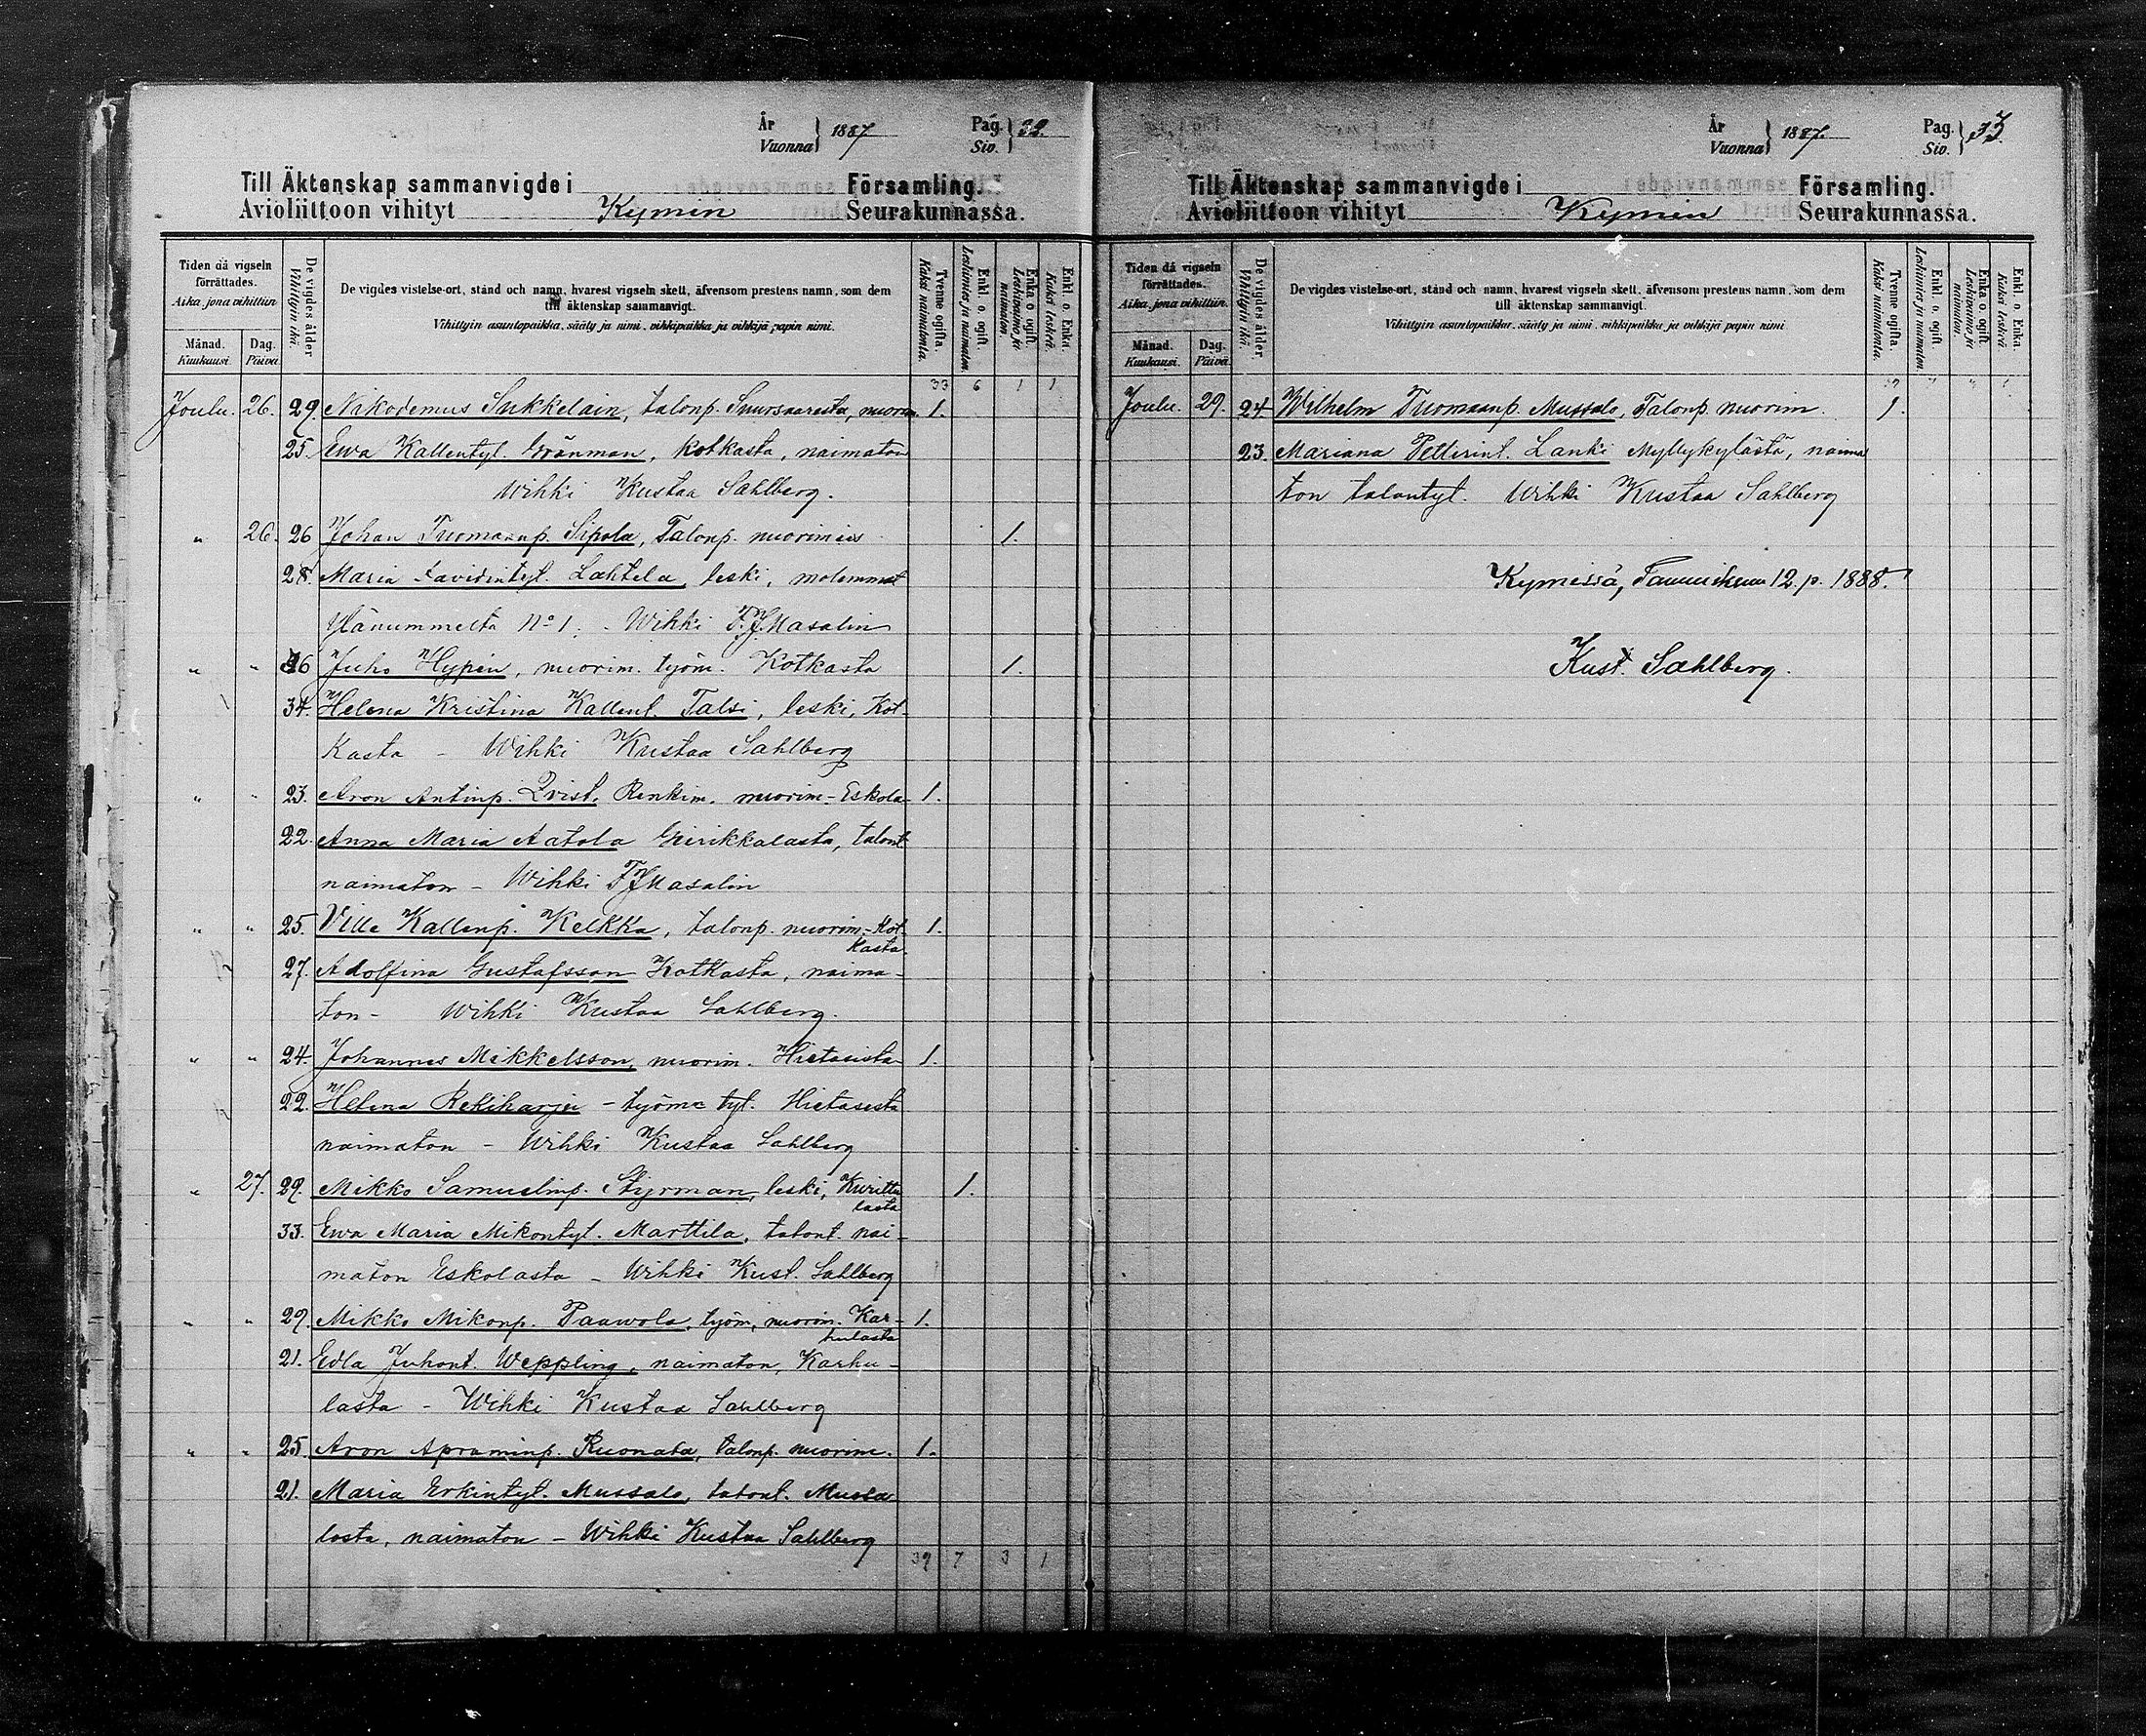 År Vuonna } 1887 Pag. Siv. } 32.
Till Äktenskap sammanvigde i Församling.
Avioliittoon vihityt Kymin Seurakunnassa.
Tiden då vigseln förrättades.
Aika, jona vihittiin
Månad. Kuukausi. Dag. Päivä
De vigdes ålder
Vihittyin ikä.
De vigdes vistelse-ort, stånd och namn, hvarest vigseln skett, äfvensom prestens namn, som dem
till äktenskap sammanvigt.
Vihittyin asuntopaikka, sääty ja nimi, vihkipaikka ja vihkijä papin nimi.
Tvenne ogifta.
Kaksi naimatonta.
Enkl. o. ogift.
Leskimies ja naimaton.
Enka o. ogift.
Leskivaimo ja naimaton.
Enkl. o. Enka.
Kaksi leskeä.
33 6 1 1
Joulu. 26. 29. Nikodemus Sukkelain, talonp. Suursaaresta, nuorim. 1.
25. Ewa Kallentyt. Grönman, Kotkasta, naimaton
Wihki Kustaa Sahlberg.
" 26. 26 Johan Tuomaanp. Sipola, Talonp. nuorimies 1.
28. Maria Davidintyt. Lahtela, leski, molemmat
Ylänummelta No 1. - Wihki F.J. Masalin
" " 26 Juho Hypén, nuorim. työm. Kotkasta 1.
34. Helena Kristina Kallent. Talsi, leski, Kot-
kasta - Wihki Kustaa Sahlberg
" " 23. Aron Antinp. Qvist, Renkim. nuorim - Eskola- 1.
22. Anna Maria Aatola Girikkalasta, talont
naimaton - Wihki F J Masalin
" " 25. Ville Kallenp. Kelkka, talonp. nuorim. Kot- 1.
kasta
27. Adolfina Gustafsson Kotkasta, naima-
ton - Wihki Kustaa Sahlberg.
" " 24. Johannes Mikkelsson, nuorim. Hietasista 1.
22. Helena Rekiharju - työm tyt. Hietasesta
naimaton - Wihki Kustaa Sahlberg
" 27. 29. Mikko Samuelinp. Styrman, leski, Kuritta 1.
lasta
33. Ewa Maria Mikontyt. Marttila, talont. nai-
maton Eskolasta - Wihki Kust. Sahlberg
" " 29. Mikko Mikonp. Paawola, työm, nuorim. Kar- 1.
hulasta
21. Edla Juhont. Weppling, naimaton, Karhu-
lasta - Wihki Kustaa Sahlberg
" " 25. Aron Apraminp. Ruonala, talonp. nuorim. 1.
21. Maria Erkintyt. Mussalo, talont. Mussa
losta, naimaton - Wihki Kustaa Sahlberg
39 7 3 1
År Vuonna } 1887. Pag. Siv. } 33
Till Äktenskap sammanvigde i Församling.
Avioliittoon vihityt Kymin Seurakunnassa.
Tiden då vigseln förrättades.
Aika, jona vihittiin.
Månad. Kuukausi. Dag. Päivä.
De vigdes ålder
Vihittyin ikä.
De vigdes vistelse-ort, stånd och namn, hvarest vigseln skett, äfvensom prestens namn, som dem
till äktenskap sammanvigt.
Vihittyin asuntopaikka, sääty ja nimi, vihkipaikka ja vihkijä papin nimi
Tvenne ogifta.
Kaksi naimatonta.
Enkl. o. ogift.
Leskimies ja naimaton.
Enka o. ogift.
Leskivaimo ja naimaton.
Enkl. o. Enka.
Kaksi leskeä.
Joulu. 29. 24. Wilhelm Tuomaanp. Mussalo, Talonp. nuorim. 1.
23. Mariana Petterint. Lanki Myllykylästä, naima
ton talontyt. Wihki Kustaa Sahlberg
Kymissä, Tammikuun 12. p. 1888.
Kust. Sahlberg.